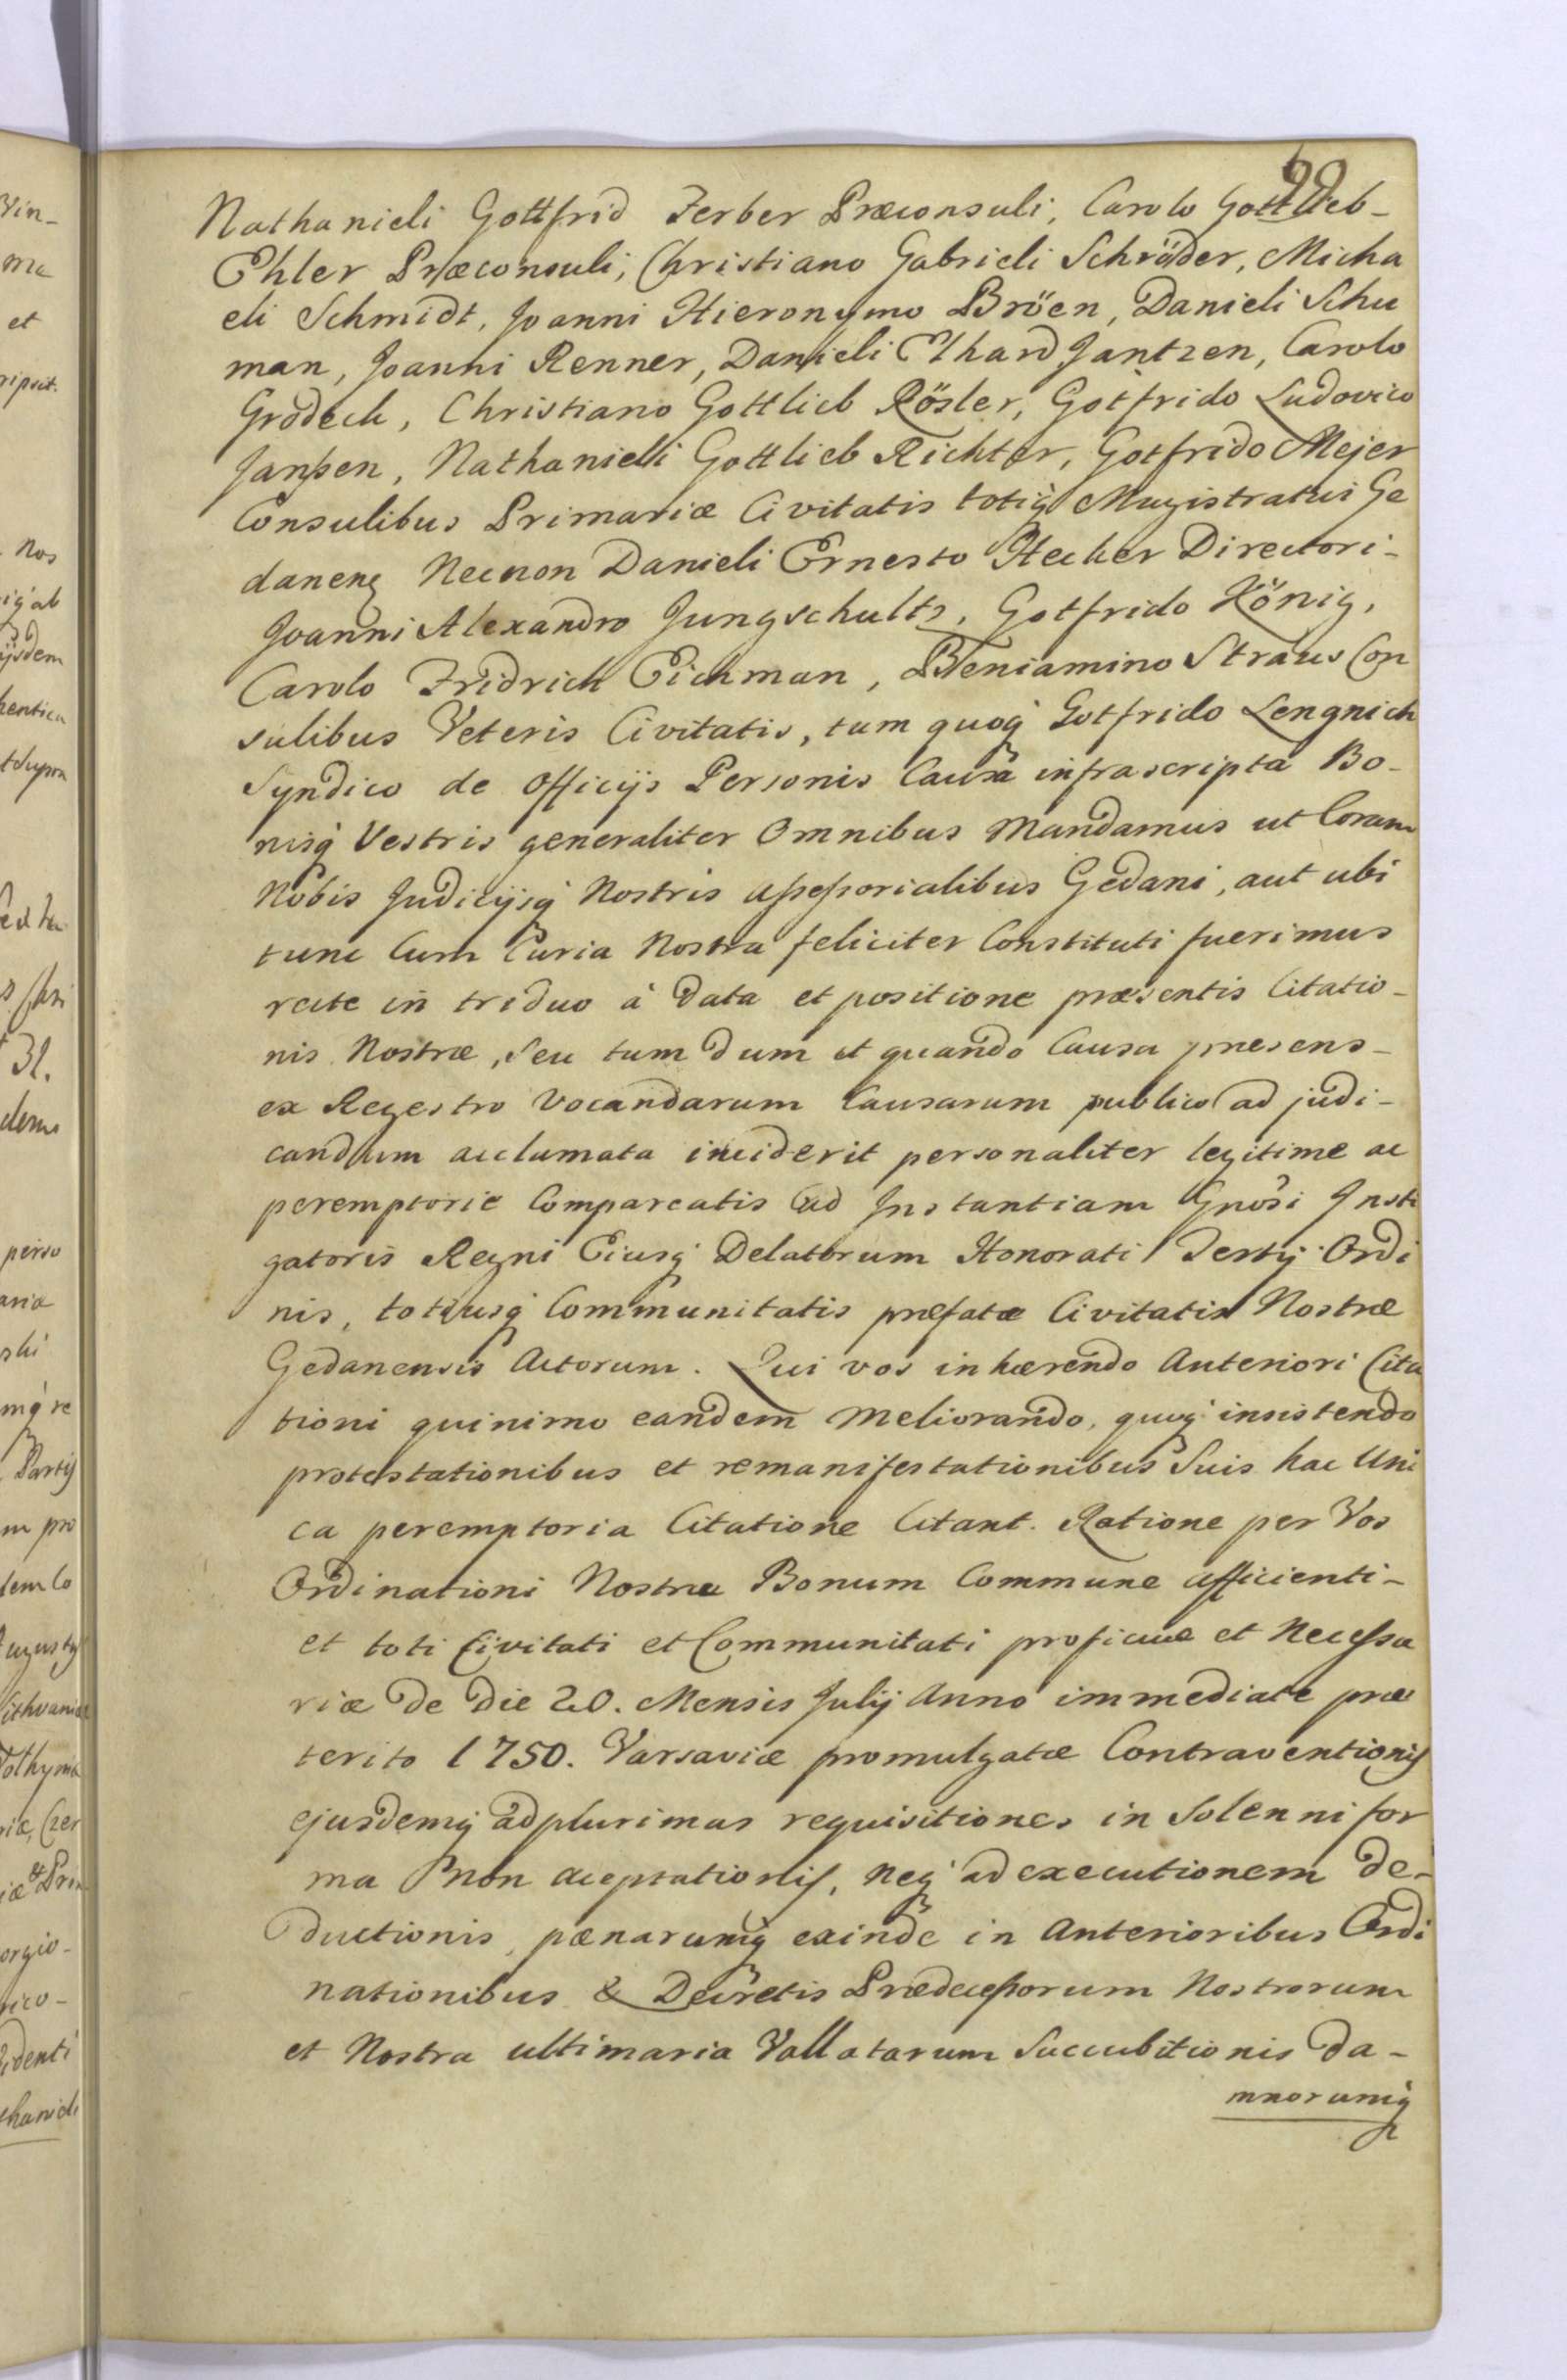 Nathanieli Gottfrid Ferber Præconsuli, Carolo Gottlieb-
Ehler Præconsuli, Christiano Gabrieli Schröder, Micha
eli Schmidt, Joanni Hieronymo Bröen, Danieli Schu
man, Joanni Renner, Danieli Elhard Jantzen, Carolo
Grodeck, Christiano Gottlieb Rösler, Gotfrido Ludovico
Janßen, Nathanieli Gottlieb Richter, Gotfrido Mejer
Consulibus Primariæ Civitatis totiq Magistratui Ge
daneng Necnon Danieli Ernesto Hecker Directori-
Joanni Alexandro Jungschultz, Gotfrido König,
Carolo Fridrich Eichman, Beniamino Straus Con
sulibus Veteris Civitatis, tum quoq Gotfrido Lengnich
Syndico de Officijs Personis Causa infrascripta Bo-
nisq Vestris generaliter Omnibus Mandamus ut Coram
Nobis Judicijsq Nostris aßeßorialibus Gedani, aut ubi
tunc Cum Curia Nostra feliciter Constituti fuerimus
recte in triduo à Data et positione præsentis Citatio-
nis Nostræ, seu tum dum et quando Causa præsens-
ex Regestro Vocandarum Causarum publico ad judi-
candum acclamata inciderit personaliter legitime ac
peremptorie Compareatis ad Instantiam Gnosi Insti
gatoris Regni Eiusq Delatorum Honorati Tertij Ordi
nis, totiusq Communitatis præfatæ Civitatis Nostræ
Gedanensis Actorum. Qui vos inhærendo Anteriori Cita
tioni quinimo eandem Meliorando, quoq insistendo
protestationibus et remanifestationibus Suis hac Uni
ca peremptoria Citatione Citant. Ratione per Vos
Ordinationi Nostræ Bonum Commune afficienti-
et toti Civitati et Communitati proficuæ et Neceßa
riæ De Die 20. Mensis Julij Anno immediate præ
terito 1750. Varsaviæ promulgatæ Contraventionis
ejusdemq ad plurimas requisitiones in Solenni for
ma non aceptationis, neq ad executionem de-
ductionis, pænarumq exinde in Anterioribus Ordi
nationibus & Decretis Prædeceßorum Nostrorum
et Nostra ultimaria Vallatarum Succubitionis da-
mnorumq